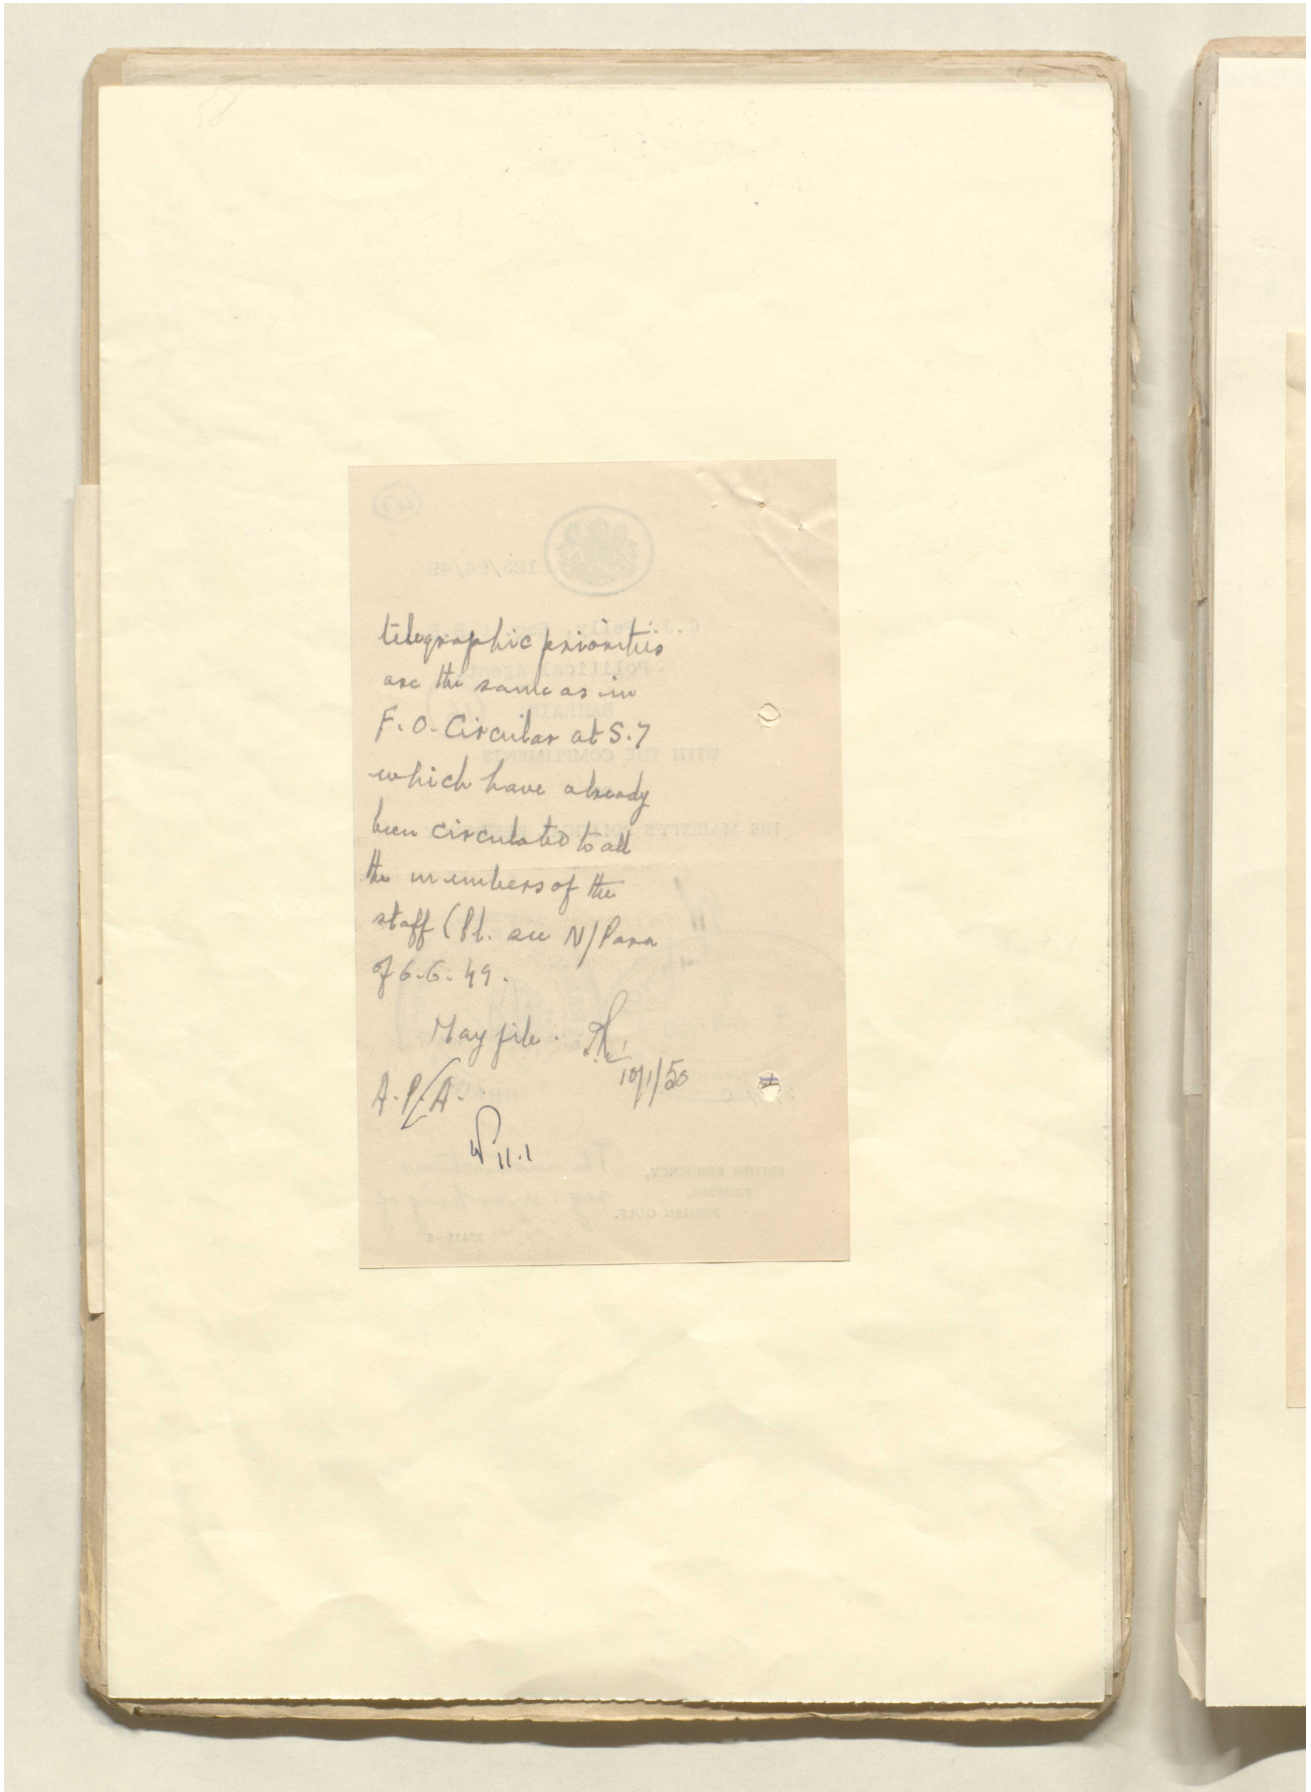 telegraphic priorities
are the same as in
F.O. Circular at S.7
which have already
been circulated to all
the members of the
staff (Pl. see N/Para
of 6.6.49.
May file.
10/1/50
A.P.A.
11.1